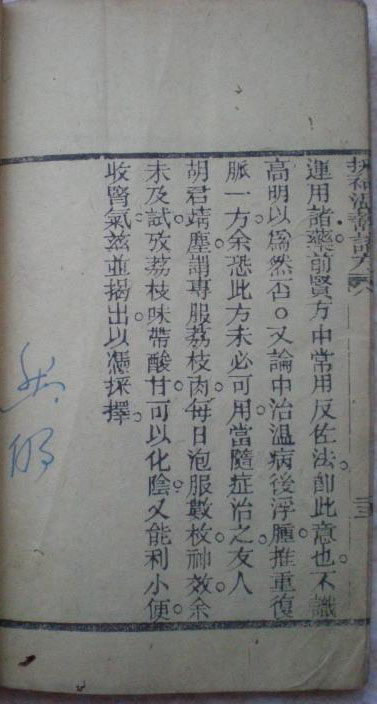 運用諸藥前賢方中常用反佐法卽此意也不識
高明以爲然否○又論中治溫病後浮腫推重復
脈一方余恐此方未必可用當隨症治之友人
胡君靖塵謂專服荔枝肉每日泡服數枚神效余
未及試攷荔枝味帶酸甘可以化陰又能利小便
收腎氣茲並揭出以憑採擇